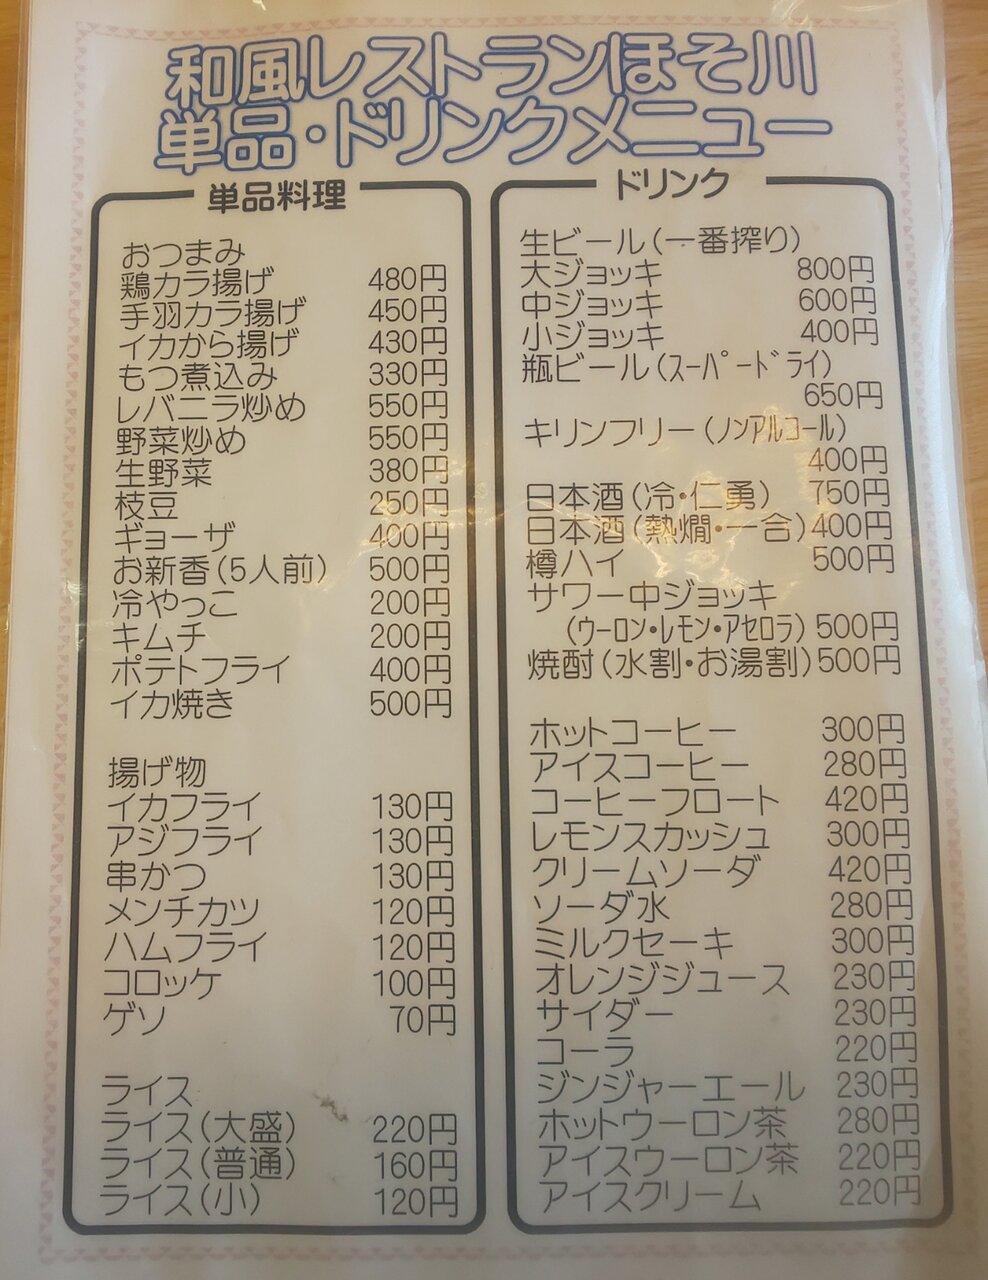 和風レストランほそ川
単品・ドリンクメニュー
単品料理
おつまみ
鶏カラ揚げ 480円
手羽カラ揚げ 450円
イカから揚げ 430円
もつ煮込み 330円
レバニラ炒め 550円
野菜炒め 550円
生野菜 380円
枝豆 250円
ギョーザ 400円
お新香(5人前) 500円
冷やっこ 200円
キムチ 200円
ポテトフライ 400円
イカ焼き 500円
揚げ物
イカフライ 130円
アジフライ 130円
串かつ 130円
メンチカツ 120円
ハムフライ 120円
コロッケ 100円
ゲソ 70円
ライス
ライス(大盛) 220円
ライス(普通) 160円
ライス(小) 120円
ドリンク
生ビール(一番搾り)
大ジョッキ 800円
中ジョッキ 600円
小ジョッキ 400円
瓶ビール(スーパードライ)
650円
キリンフリー(ノンアルコール)
400円
日本酒(冷・仁勇) 750円
日本酒(熱燗・一合) 400円
樽ハイ 500円
サワー中ジョッキ
(ウーロン・レモン・アセロラ) 500円
焼酎(水割・お湯割) 500円
ホットコーヒー 300円
アイスコーヒー 280円
コーヒーフロート 420円
レモンスカッシュ 300円
クリームソーダ 420円
ソーダ水 280円
ミルクセーキ 300円
オレンジジュース 230円
サイダー 230円
コーラ 220円
ジンジャーエール 230円
ホットウーロン茶 280円
アイスウーロン茶 220円
アイスクリーム 220円